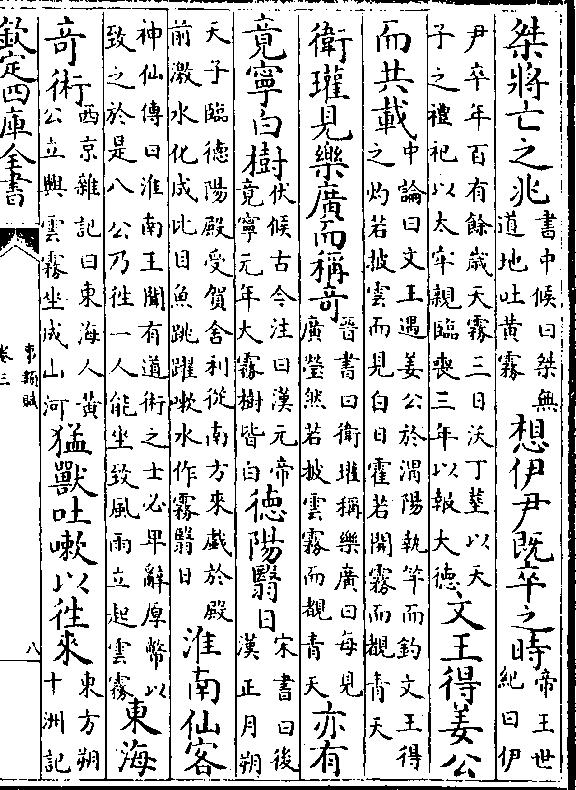 桀將亡之兆書中候曰桀無道地吐黃霧想伊尹既卒之時帝王世紀曰伊
尹卒年百有餘歲天霧三日沃丁塟以天子之禮祀以太牢親臨喪三年以報大德文王得姜公
而共載中論曰文王遇姜公於渭陽執竿而釣文王得之灼若披雲而見白日霍若開霧而覩青天
衛瓘見樂廣而稱奇晉書曰衛瓘稱樂廣曰每見廣瑩然若披雲霧而覩青天亦有
竟寧白樹伏候古今注曰漢元帝竟寧元年大霧樹皆白德陽翳日宋書曰後漢正月朔
天子臨德陽殿受賀舍利從南方來戲於殿前激水化成比目魚跳躍嗽水作霧翳日淮南仙客
神仙傳曰淮南王聞有道術之士必卑辭厚幣以致之於是八公乃徃一人能坐致風雨立起雲霧東海
奇術西京雜記曰東海人黃公立興雲霧坐成山河猛獸吐嗽以徃來東方朔十洲記
欽定四庫全書
事類賦
卷三
八